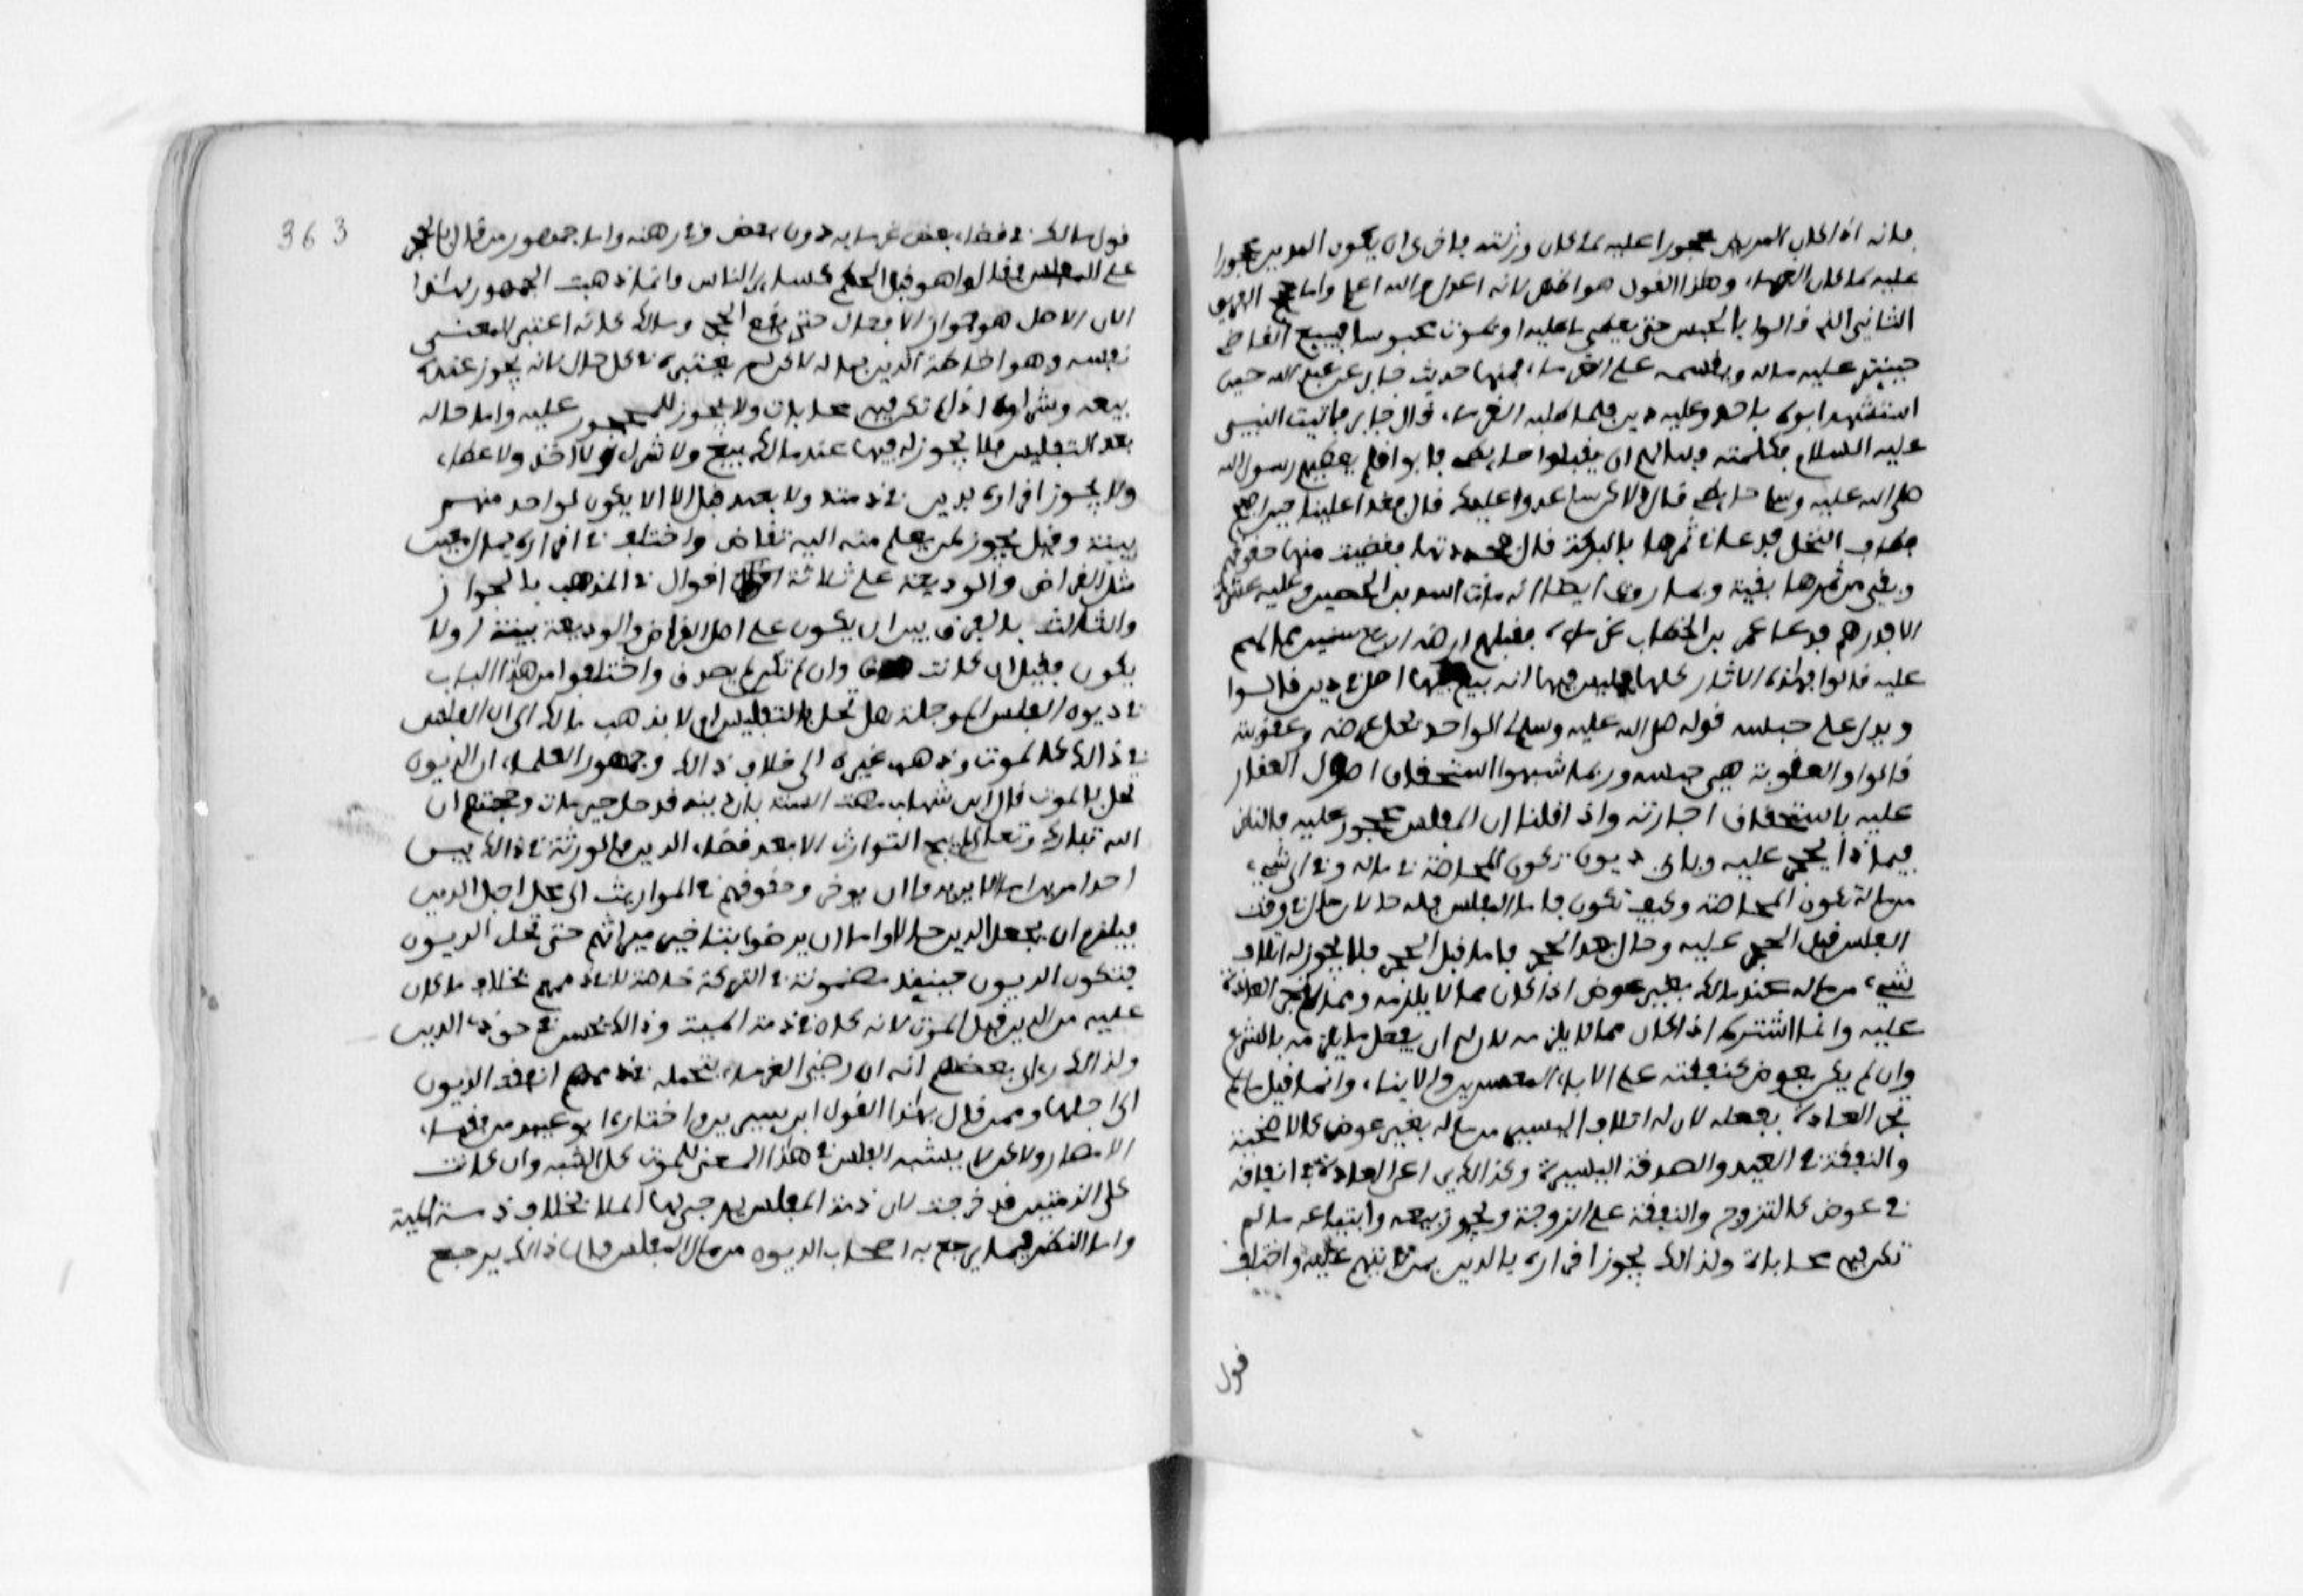 فانه اذا كان المريض محجورا عليه لمكان ورثته فاحرى ان يكون المدين محجورا
عليه لمكان الغرماء وهذا القول هو اظهر لانه اعدل والله اعلم واما حجج الفريق
الثاني الذي قالوا بالحبس حتى يعطي ما عليه او يموت محبوسا فيبيع القاضي
حينئذ عليه ماله ويقسمه على الغرماء فمنها حديث جابر بن عبد الله حين
استشهد ابوه باحد وعليه دين فلما طلبه الغرماء قال جابر فاتيت النبي
عليه السلام فكلمته فسالهم ان يقبلوا حايطي فابوا فلم يعطهم رسول الله
صلى الله عليه وسلم حايطي قال ولاكن ساغدوا عليك قال فغدا علينا حين اصبح
فطاف بالنخل فدعا في ثمرها بالبركة قال فجددتها فقضيت منها حقوقهم
وبقي من ثمرها بقية وبما روي ايضا انه مات اسيد بن الحضير وعليه عشرة
الاف درهم فدعا عمر بن الخطاب غرماءه فقبلهم ارضه اربع سنين مما لهم
عليه قالوا فهذه الاثار كلها ليس فيها انه بيع اصل في دين قالوا
ويدل على حبسه قوله صلى الله عليه وسلم لي الواجد يحل عرضه وعقوبته
قالوا والعقوبة هي حبسه وربما شبهوا استحقاق اصول العقار
عليه باستحقاق اجارته واذا قلنا ان المفلس محجور عليه فالنظر
فيماذا يحجر عليه وباي ديون تكون المحاصة في ماله وفي اي شيء
من ماله تكون المحاصة وكيف تكون فاما المفلس فله حالان حال في وقت
الفلس قبل الحجر عليه وحال بعد الحجر فاما قبل الحجر فلا يجوز له اتلاف
شيء من ماله عند مالك بغير عوض اذا كان مما لا يلزمه ومما لا تجري العادة
عليه وانما اشترط اذا كان مما لا يلزمه لان له ان يفعل ما يلزمه بالشرع
وان لم يكن بعوض كنفقته على الاباء المعسرين والابناء وانما قيل ما لم
تجر العادة بفعله لان له اتلاف اليسير من ماله بغير عوض كالاضحية
والنفقة في العيد والصدقة اليسيرة وكذالك يراعى العادة في انفاقه
في عوض كالتزوج والنفقة على الزوجة ويجوز بيعه وابتياعه ما لم
تكن فيه محاباة ولذالك يجوز اقراره بالدين لمن لا يتهم عليه واختلف
قول
363
قول مالك في قضاء بعض غرمايه دون بعض وفي رهنه واما جمهور من قال بالحجر
على المفلس فقالوا هو قبل الحكم كساير الناس وانما ذهبت الجمهور لهذا
لان الاصل هو جواز الافعال حتى يقع الحجر ومالك كانه اعتبر المعنى
نفسه وهو احاطة الدين بماله لاكن لم يعتبره في كل حال لانه يجوز عنده
بيعه وشراوه اذا لم تكن فيه محابات ولا يجوز للمحجور عليه واما حاله
بعد التفليس فلا يجوز له فيها عند مالك بيع ولا شراء ولا اخذ ولا عطاء
ولا يجوز اقراره بدين في ذمته ولا بعيد قبل الا الا يكون لواحد منهم
بينة وقيل يجوز لمن يعلم منه اليه تقاض واختلف في اقراره بمال معين
مثل القراض والوديعة على ثلاثة اقوال في المذهب بالجواز
والثالث بالفرق بين ان يكون على اصل القراض والوديعة بينة اولا
يكون فقيل ان كانت صدق وان لم تكن لم يصدق واختلفوا من هذا الباب
في ديون المفلس الموجلة هل تحل بالتفليس ام لا فذهب مالك الى ان الفلس
في ذالك كالموت وذهب غيره الى خلاف ذالك وجمهور العلماء ان الديون
تحل بالموت قال ابن شهاب مضت السنة بان دينه قد حل حين مات وحجتهم ان
الله تبارك وتعالى لم يبح التوارث الا بعد قضاء الدين فالورثة في ذالك بين
احد امرين اما الا يريدوا ان يوخروا حقوقهم في المواريث الى محل اجل الدين
فيلزم ان يجعل الدين حالا واما ان يرضوا بتاخير ميراثهم حتى تحل الديون
فتكون الديون حينئذ مضمونة في التركة خاصة لا في ذممهم بخلاف ما كان
عليه من الدين قبل الموت لانه كان في ذمة الميت وذالك يحسن في حق ذي الدين
ولذالك راى بعضهم انه ان رضي الغرماء بتحمله في ذممهم ابقيت الديون
الى اجلها وممن قال بهذا القول ابن سيرين واختاره ابو عبيد من فقهاء
الامصار ولاكن لا يشبه الفلس في هذا المعنى الموت كل الشبه وان كانت
كلى الذمتين قد خربت لان ذمة المفلس يرجى لها المال بخلاف ذمة الميت
واما النظر فيما يرجع به اصحاب الديون من مال المفلس فان ذالك يرجع